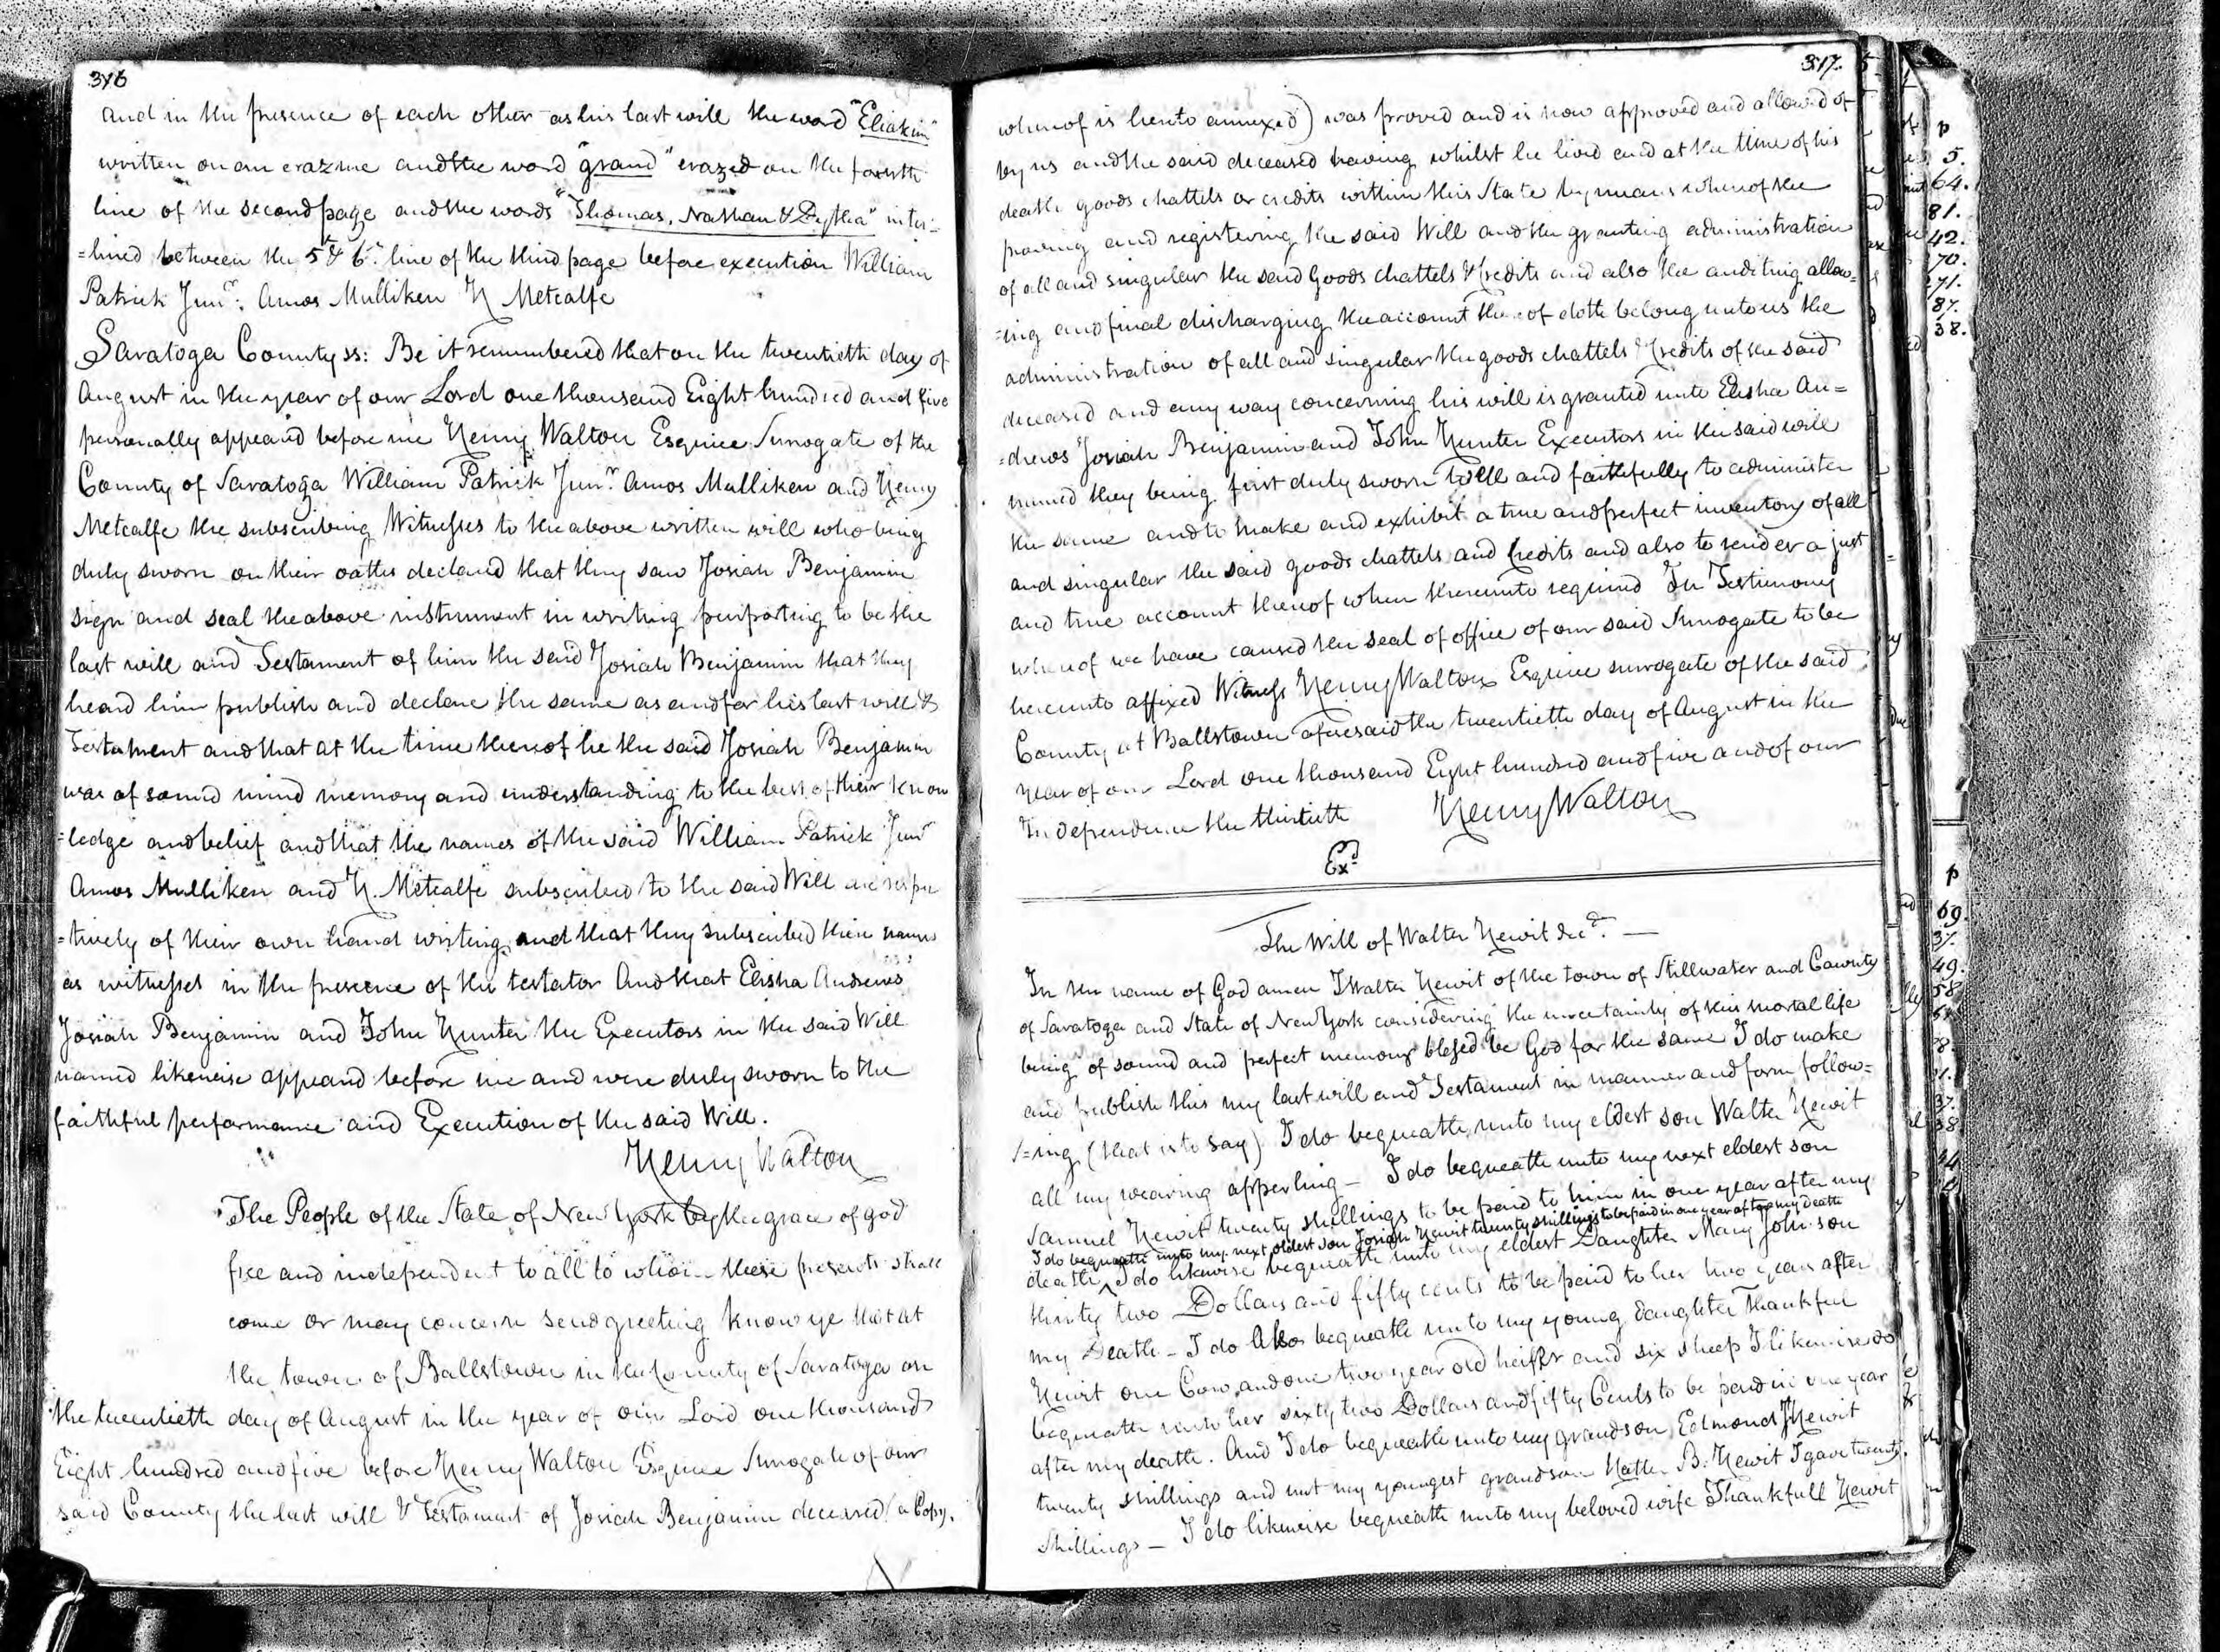 316
and in the presence of each other as his last will the word "Eliakim"
written on an erazure and the word "grand" erazed on the fourth
line of the second page and the words "Thomas, Nathan & " inter-
=lined between the 5th & 6th line of the third page before execution William
Patrick Junr. Amos Mulliken H Metcalfe
Saratoga County ss: Be it remembered that on the twentieth day of
August in the year of our Lord one thousand Eight hundred and five
personally appeared before me Henry Walton Esquire Surrogate of the
County of Saratoga William Patrick Junr. Amos Mulliken and Henry
Metcalfe the subscribing Witnesses to the above written will who being
duly sworn on their oaths declared that they saw Josiah Benjamin
sign and seal the above instrument in writing purporting to be the
last will and Testament of him the said Josiah Benjamin that they
heard him publish and declare the same as and for his last will &
Testament and that at the time thereof he the said Josiah Benjamin
was of sound mind memory and understanding to the best of their know
=ledge and belief and that the names of the said William Patrick Junr
Amos Mulliken and H. Metcalfe subscribed to the said Will are respec
=tively of their own hand writing and that they subscribed their names
as witnesses in the presence of the testator And that Elisha Andrews
Josiah Benjamin and John Hunter the Executors in the said Will
named likewise appeared before me and were duly sworn to the
faithful performance and Execution of the said Will.
Henry Walton
The People of the State of New York by the grace of god
free and independent to all to whom these presents shall
come or may concern send greeting know ye that at
the town of Ballstown in the County of Saratoga on
the twentieth day of August in the year of our Lord one thousand
Eight hundred and five before Henry Walton Esquire Surrogate of our
said County the last will & Testament of Josiah Benjamin deceased (a Copy
317.
whereof is hereto annexed) was proved and is now approved and allowed of
by us and the said deceased having whilst he lived and at the time of his
death goods chattels or credits within this State by means whereof the
proving and registering the said Will and the granting administration
of all and singular the said Goods chattels & Credits and also the auditing allow=
=ing and final discharging the account thereof doth belong unto us the
administration of all and singular the goods chattels & Credits of the said
deceased and any way concerning his will is granted unto Elisha An=
=drews Josiah Benjamin and John Hunter Executors in the said will
named they being first duly sworn well and faithfully to administer
the same and to make and exhibit a true and perfect inventory of all
and singular the said goods chattels and Credits and also to render a just
and true account thereof when thereunto required In Testimony
whereof we have caused the seal of office of our said Surrogate to be
hereunto affixed Witness Henry Walton Esquire surrogate of the said
County at Ballstown aforesaid the twentieth day of August in the
year of our Lord one thousand Eight hundred and five and of our
Independence the thirtieth Henry Walton
Exd
The Will of Walter Hewit decd. —
In the name of God amen I Walter Hewit of the town of Stillwater and County
of Saratoga and State of New York considering the uncertainty of this mortal life
being of sound and perfect memory blessed be God for the same I do make
and publish this my last will and Testament in manner and form follow=
=ing (that is to say) I do bequeath unto my eldest son Walter Hewit
all my wearing apperling — I do bequeath unto my next eldest son
Samuel Hewit twenty shillings to be paid to him in one year after my
I do bequeath unto my next oldest son Josiah Hewit twenty shillings to be paid in one year after my death
death ^ I do likewise bequeath unto my eldest Daughter Mary Johnson
thirty two Dollars and fifty cents to be paid to her two years after
my Death — I do Also bequeath unto my young daughter Thankful
Hewit one Cow and one two year old heiffer and six sheep I likewise do
bequeath unto her sixty two Dollars and fifty Cents to be paid in one year
after my death. And I do bequeath unto my grandson Edmond Hewit
twenty shillings and unt my youngest grandson B. Hewit I gave twenty
shillings — I do likewise bequeath unto my beloved wife Thankfull Hewit